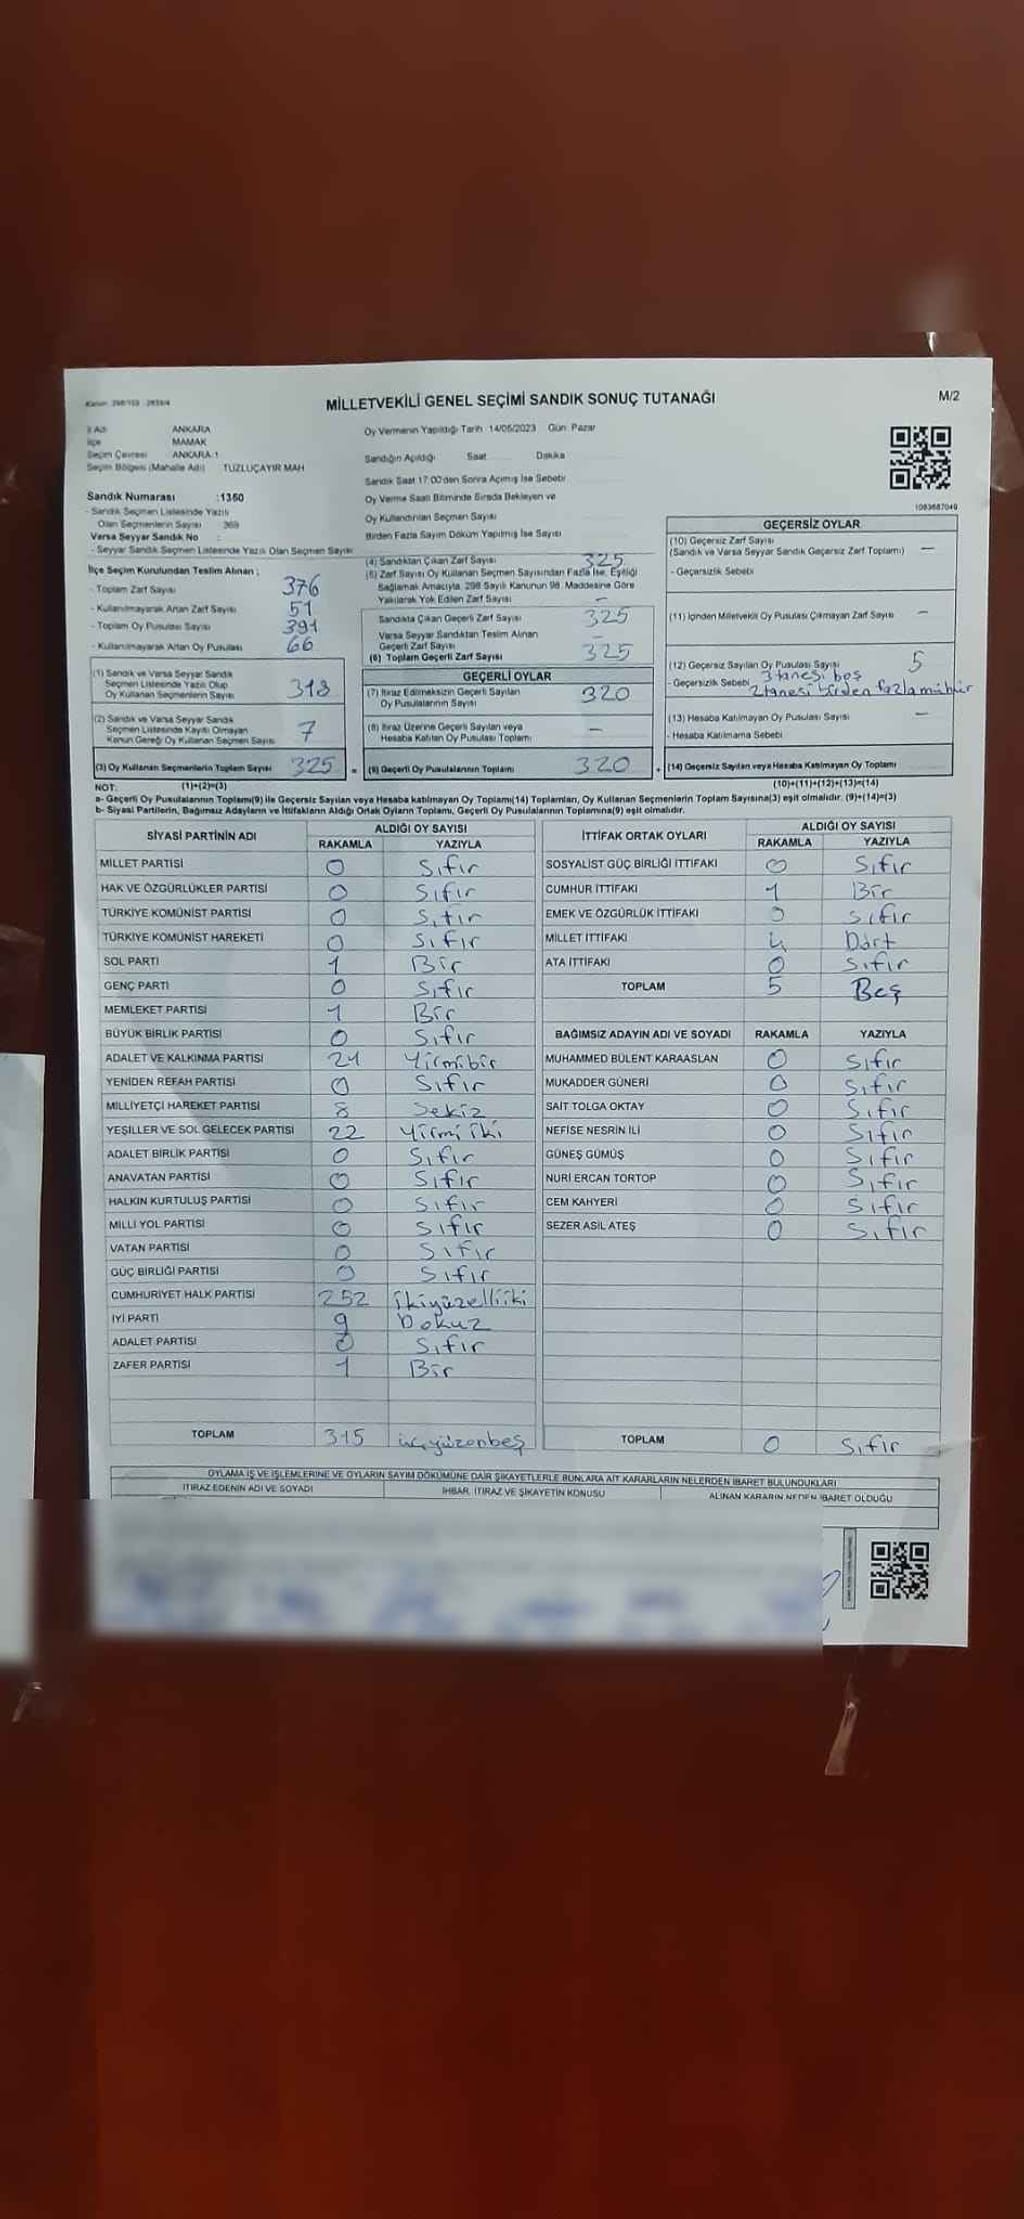 MİLLETVEKİLİ GENEL SEÇİMİ SANDIK SONUÇ TUTANAĞI
M/2
İl Adı ANKARA
İlçe MAMAK
Seçim Çevresi ANKARA-1
Seçim Bölgesi (Mahalle Adı) TUZLUÇAYIR MAH
Sandık Numarası :1360
- Sandık Seçmen Listesinde Yazılı
Olan Seçmenlerin Sayısı 369
Varsa Seyyar Sandık No :
- Seyyar Sandık Seçmen Listesinde Yazılı Olan Seçmen Sayısı
İlçe Seçim Kurulundan Teslim Alınan ;
- Toplam Zarf Sayısı 376
- Kullanılmayarak Artan Zarf Sayısı 51
- Toplam Oy Pusulası Sayısı 391
- Kullanılmayarak Artan Oy Pusulası 66
(1) Sandık ve Varsa Seyyar Sandık
Seçmen Listesinde Yazılı Olup
Oy Kullanan Seçmenlerin Sayısı 318
(2) Sandık ve Varsa Seyyar Sandık
Seçmen Listesinde Kaydı Olmayan
Kanun Gereği Oy Kullanan Seçmen Sayısı 7
(3) Oy Kullanan Seçmenlerin Toplam Sayısı 325
(1)+(2)=(3)
Oy Vermenin Yapıldığı Tarih :14/05/2023 Gün: Pazar
Sandığın Açıldığı Saat Dakika
Sandık Saat 17:00'den Sonra Açılmış İse Sebebi
Oy Verme Saati Bitiminde Sırada Bekleyen ve
Oy Kullandırılan Seçmen Sayısı
Birden Fazla Sayım Döküm Yapılmış İse Sayısı
(4) Sandıktan Çıkan Zarf Sayısı 325
(5) Zarf Sayısı Oy Kullanan Seçmen Sayısından Fazla İse, Eşitliği
Sağlamak Amacıyla, 298 Sayılı Kanunun 98. Maddesine Göre
Yakılarak Yok Edilen Zarf Sayısı –
Sandıkta Çıkan Geçerli Zarf Sayısı 325
Varsa Seyyar Sandıktan Teslim Alınan
Geçerli Zarf Sayısı –
(6) Toplam Geçerli Zarf Sayısı 325
GEÇERLİ OYLAR
(7) İtiraz Edilmeksizin Geçerli Sayılan
Oy Pusulalarının Sayısı 320
(8) İtiraz Üzerine Geçerli Sayılan veya
Hesaba Katılan Oy Pusulası Toplamı –
= (9) Geçerli Oy Pusulalarının Toplamı 320
1093687049
GEÇERSİZ OYLAR
(10) Geçersiz Zarf Sayısı
(Sandık ve Varsa Seyyar Sandık Geçersiz Zarf Toplamı) –
- Geçersizlik Sebebi
(11) İçinden Milletvekili Oy Pusulası Çıkmayan Zarf Sayısı –
(12) Geçersiz Sayılan Oy Pusulası Sayısı 5
- Geçersizlik Sebebi 3 tanesi boş
2 tanesi birden fazla mühür
(13) Hesaba Katılmayan Oy Pusulası Sayısı –
- Hesaba Katılmama Sebebi
+ (14) Geçersiz Sayılan veya Hesaba Katılmayan Oy Toplamı
(10)+(11)+(12)+(13)=(14)
NOT:
a- Geçerli Oy Pusulalarının Toplamı(9) ile Geçersiz Sayılan veya Hesaba katılmayan Oy Toplamı(14) Toplamları, Oy Kullanan Seçmenlerin Toplam Sayısına(3) eşit olmalıdır. (9)+(14)=(3)
b- Siyasi Partilerin, Bağımsız Adayların ve İttifakların Aldığı Ortak Oyların Toplamı, Geçerli Oy Pusulalarının Toplamına(9) eşit olmalıdır.
SİYASİ PARTİNİN ADI ALDIĞI OY SAYISI
RAKAMLA YAZIYLA
MİLLET PARTİSİ 0 Sıfır
HAK VE ÖZGÜRLÜKLER PARTİSİ 0 Sıfır
TÜRKİYE KOMÜNİST PARTİSİ 0 Sıfır
TÜRKİYE KOMÜNİST HAREKETİ 0 Sıfır
SOL PARTİ 1 Bir
GENÇ PARTİ 0 Sıfır
MEMLEKET PARTİSİ 1 Bir
BÜYÜK BİRLİK PARTİSİ 0 Sıfır
ADALET VE KALKINMA PARTİSİ 21 Yirmibir
YENİDEN REFAH PARTİSİ 0 Sıfır
MİLLİYETÇİ HAREKET PARTİSİ 8 Sekiz
YEŞİLLER VE SOL GELECEK PARTİSİ 22 Yirmi iki
ADALET BİRLİK PARTİSİ 0 Sıfır
ANAVATAN PARTİSİ 0 Sıfır
HALKIN KURTULUŞ PARTİSİ 0 Sıfır
MİLLİ YOL PARTİSİ 0 Sıfır
VATAN PARTİSİ 0 Sıfır
GÜÇ BİRLİĞİ PARTİSİ 0 Sıfır
CUMHURİYET HALK PARTİSİ 252 İkiyüzelliiki
İYİ PARTİ 9 Dokuz
ADALET PARTİSİ 0 Sıfır
ZAFER PARTİSİ 1 Bir
TOPLAM 315 üçyüzonbeş
İTTİFAK ORTAK OYLARI ALDIĞI OY SAYISI
RAKAMLA YAZIYLA
SOSYALİST GÜÇ BİRLİĞİ İTTİFAKI 0 Sıfır
CUMHUR İTTİFAKI 1 Bir
EMEK VE ÖZGÜRLÜK İTTİFAKI 0 Sıfır
MİLLET İTTİFAKI 4 Dört
ATA İTTİFAKI 0 Sıfır
TOPLAM 5 Beş
BAĞIMSIZ ADAYIN ADI VE SOYADI RAKAMLA YAZIYLA
MUHAMMED BÜLENT KARAASLAN 0 Sıfır
MUKADDER GÜNERİ 0 Sıfır
SAİT TOLGA OKTAY 0 Sıfır
NEFİSE NESRİN İLİ 0 Sıfır
GÜNEŞ GÜMÜŞ 0 Sıfır
NURİ ERCAN TORTOP 0 Sıfır
CEM KAHYERİ 0 Sıfır
SEZER ASİL ATEŞ 0 Sıfır
TOPLAM 0 Sıfır
OYLAMA İŞ VE İŞLEMLERİNE VE OYLARIN SAYIM DÖKÜMÜNE DAİR ŞİKAYETLERLE BUNLARA AİT KARARLARIN NELERDEN İBARET BULUNDUKLARI
İTİRAZ EDENİN ADI VE SOYADI İHBAR, İTİRAZ VE ŞİKAYETİN KONUSU ALINAN KARARIN NEDEN İBARET OLDUĞU